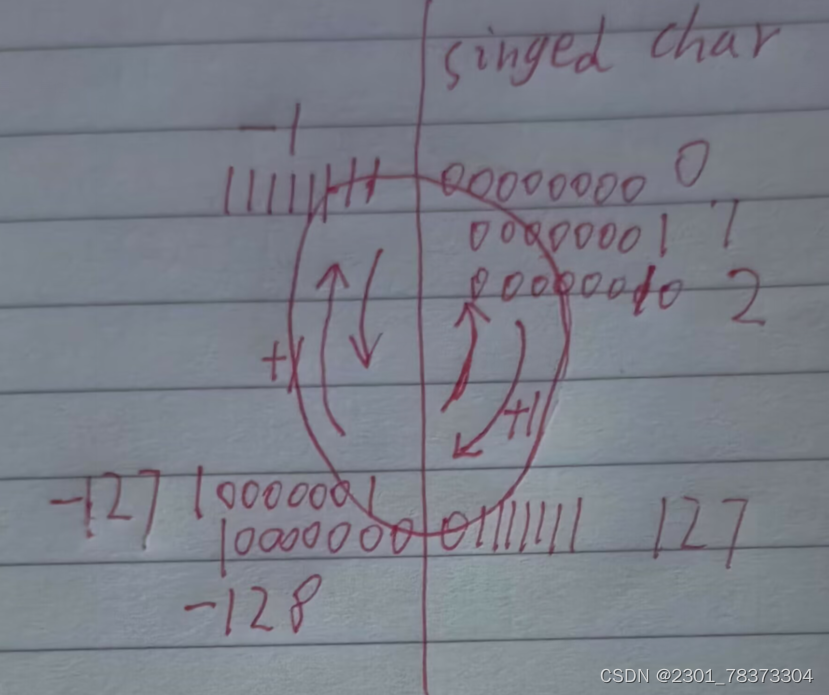 singed char
-1
11111111 00000000 0
00000001 1
00000010 2
+1
+1
-127 10000001
10000000 01111111 127
-128
CSDN @2301_78373304